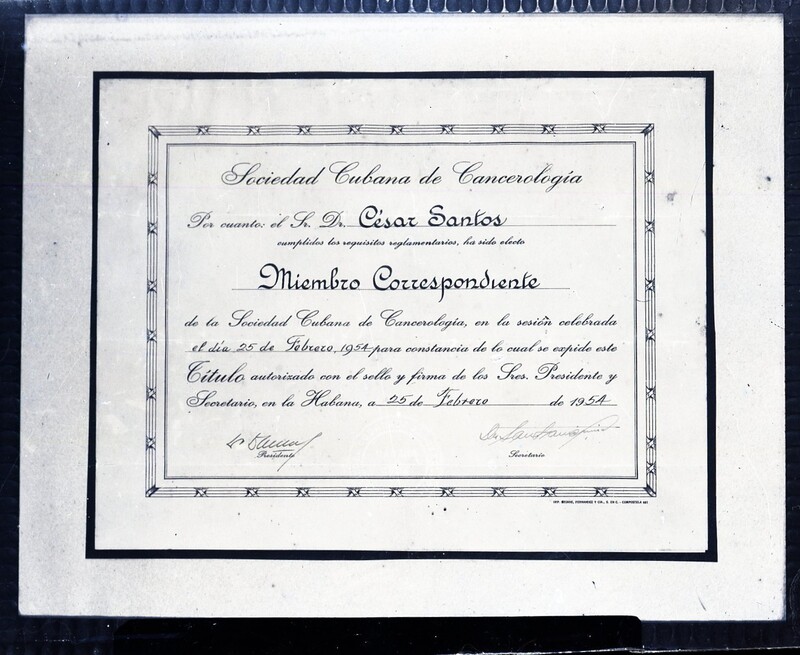 Sociedad Cubana de Cancerología
Por cuanto: el Sr. Dr. César Santos
cumplidos los requisitos reglamentarios, ha sido electo
Miembro Correspondiente
de la Sociedad Cubana de Cancerología, en la sesión celebrada
el día 25 de Febrero, 1954 para constancia de lo cual se expide este
Título autorizado con el sello y firma de los Sres. Presidente y
Secretario, en la Habana, a 25 de Febrero de 1954
Presidente
Secretario
FERNANDEZ Y CIA., S. EN C. - COMPOSTELA